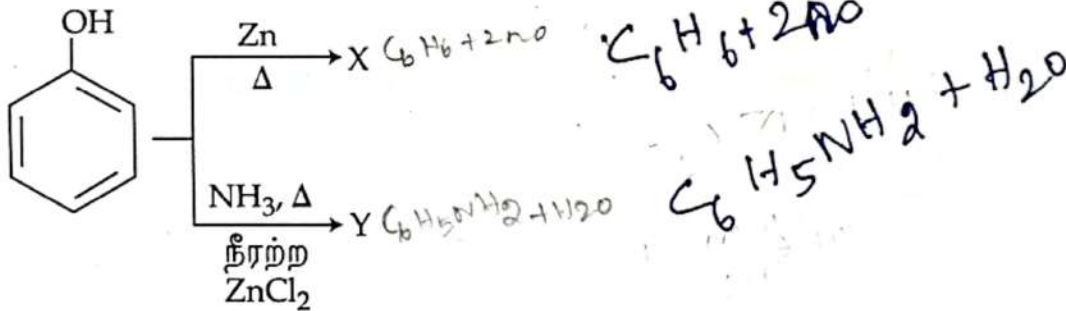 OH
Zn
Δ
X C6H6 + 2no
C6H6 + 2no
NH3, Δ
நீரற்ற
ZnCl2
Y C6H5NH2 + H2O
C6H5NH2 + H2O